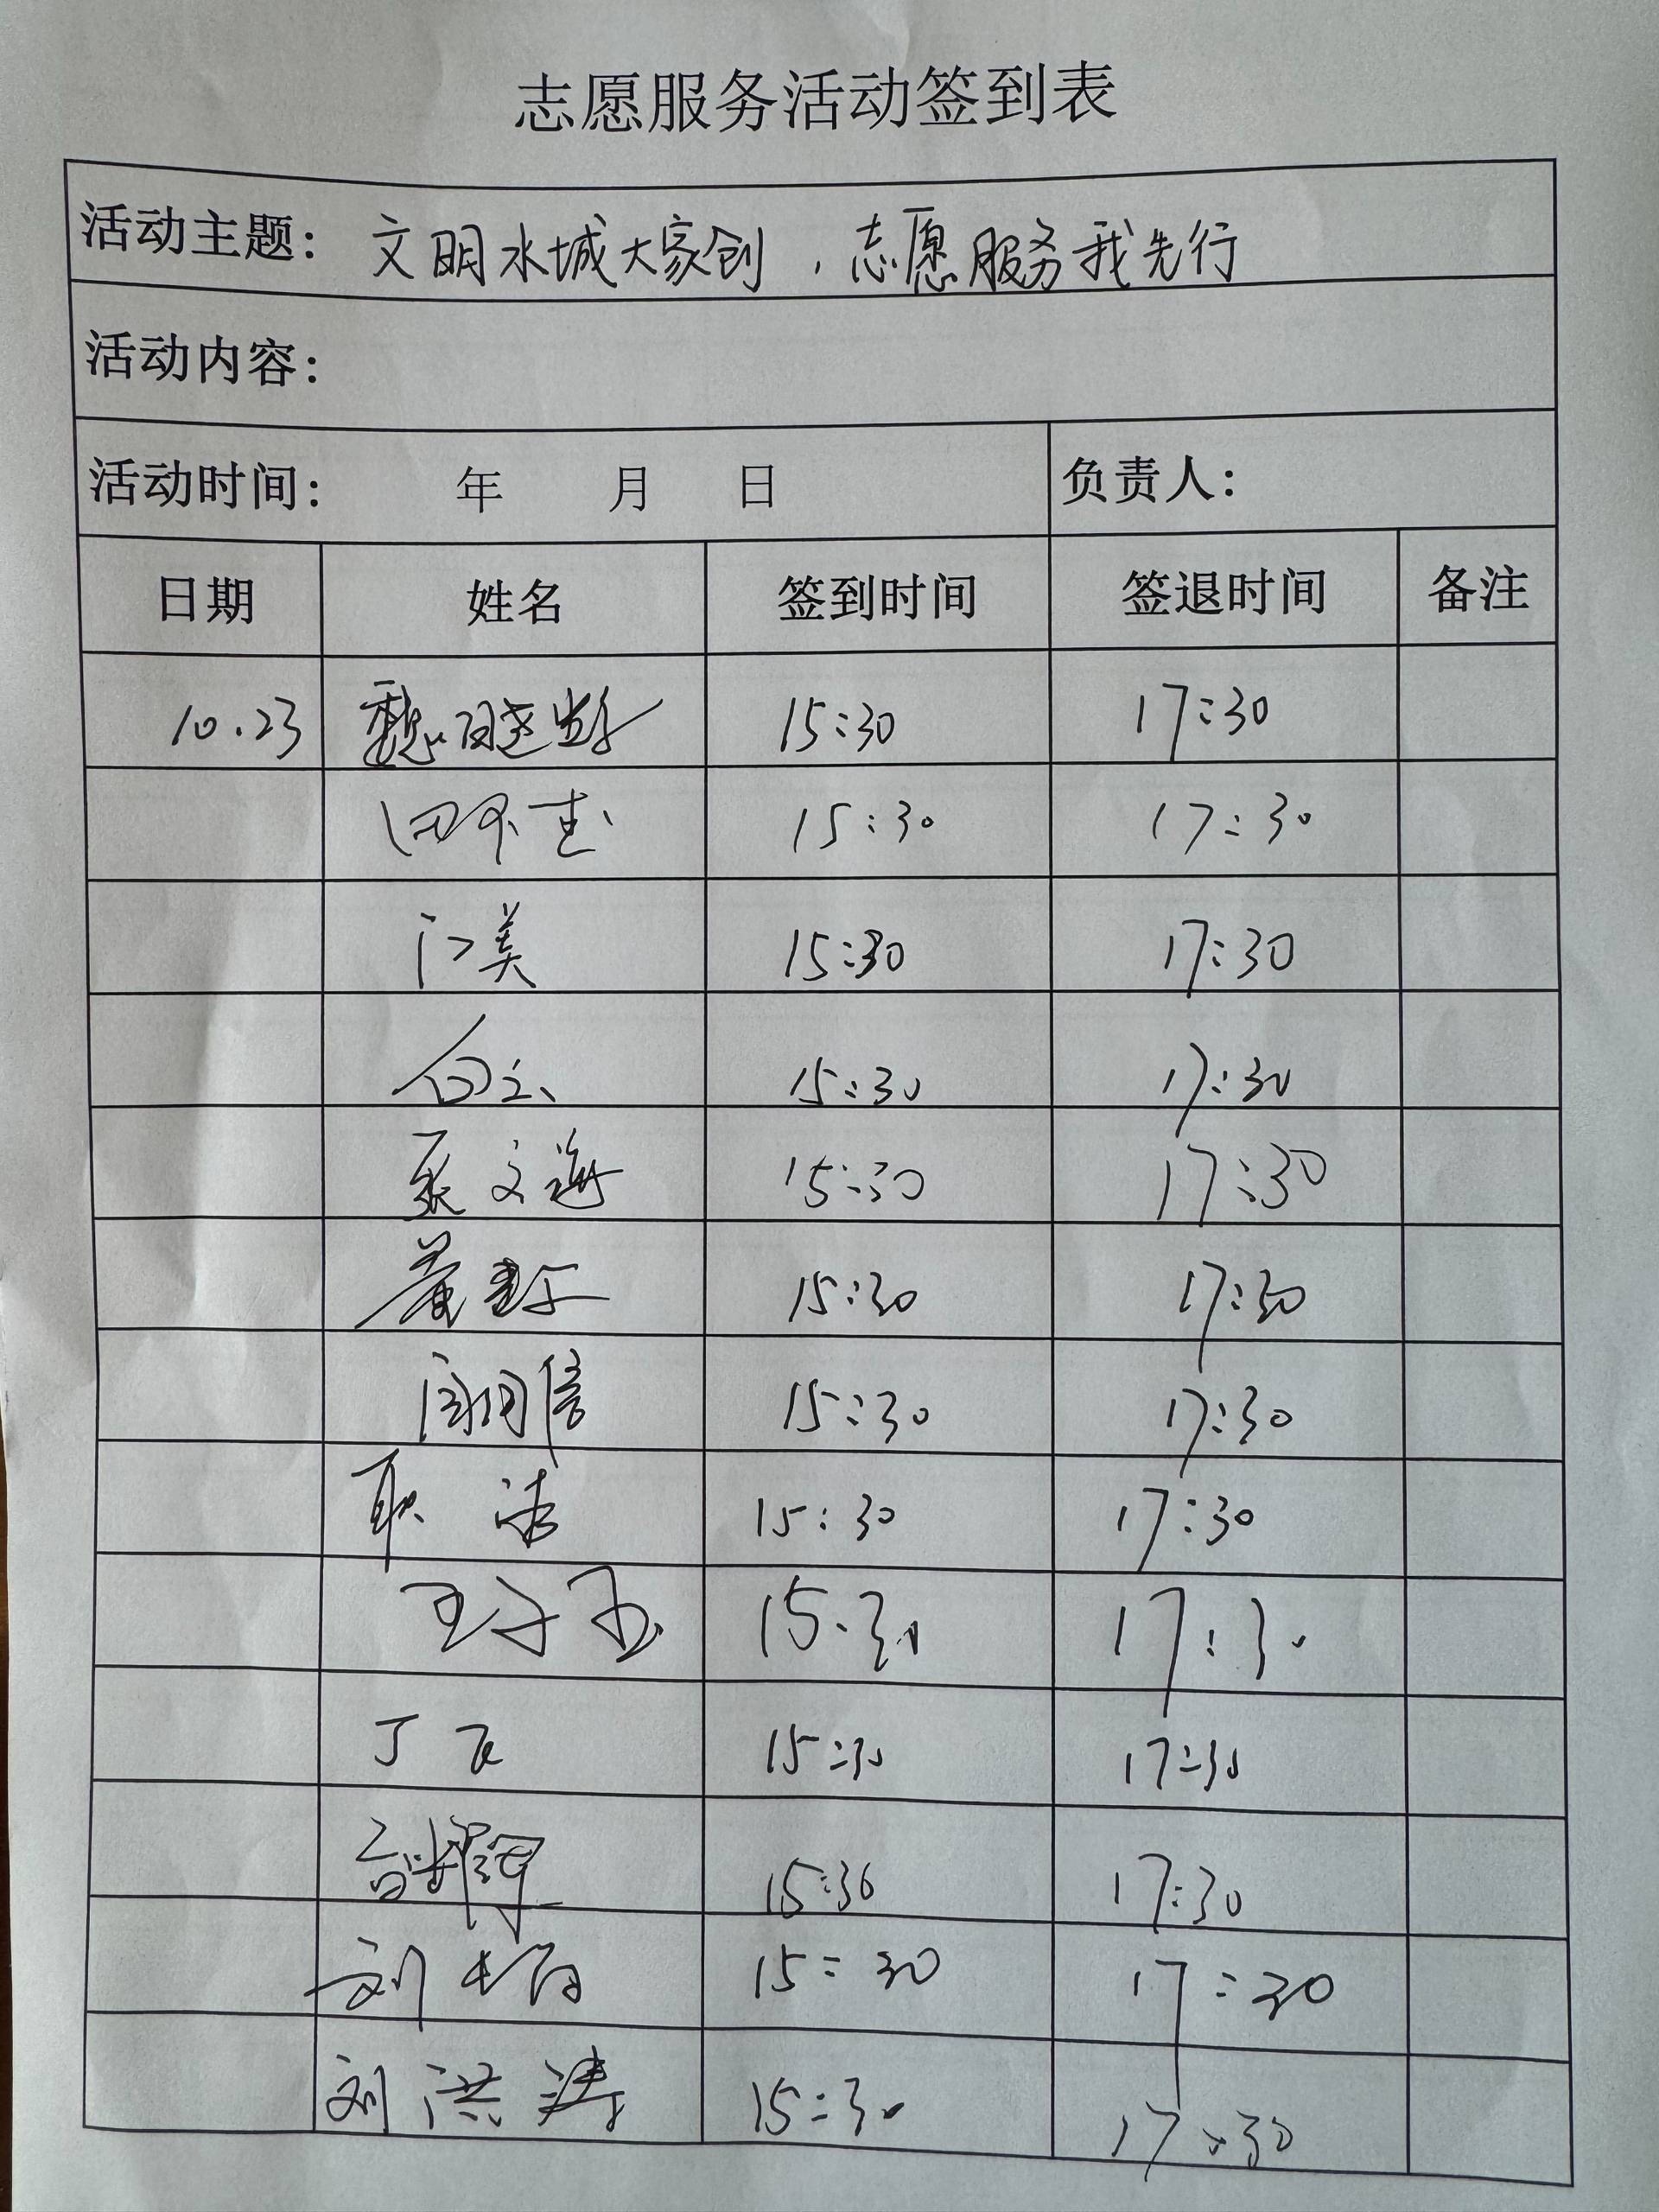 志愿服务活动签到表
活动主题：文明水城大家创，志愿服务我先行
活动内容：
活动时间： 年 月 日 负责人：
日期 姓名 签到时间 签退时间 备注
10.23 15:30 17:30
15:30 17:30
15:30 17:30
白云 15:30 17:30
15:30 17:30
15:30 17:30
15:30 17:30
耿洁 15:30 17:30
王子玉 15:30 17:30
丁 15:30 17:30
15:30 17:30
刘 15:30 17:30
刘洪涛 15:30 17:30